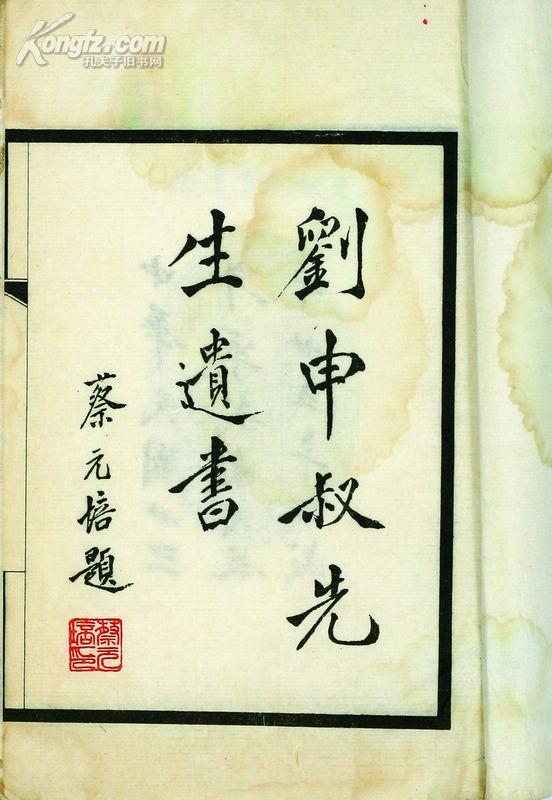 Kongfz.com
孔夫子旧书网
劉申叔先
生遺書
蔡元培題
蔡元培印